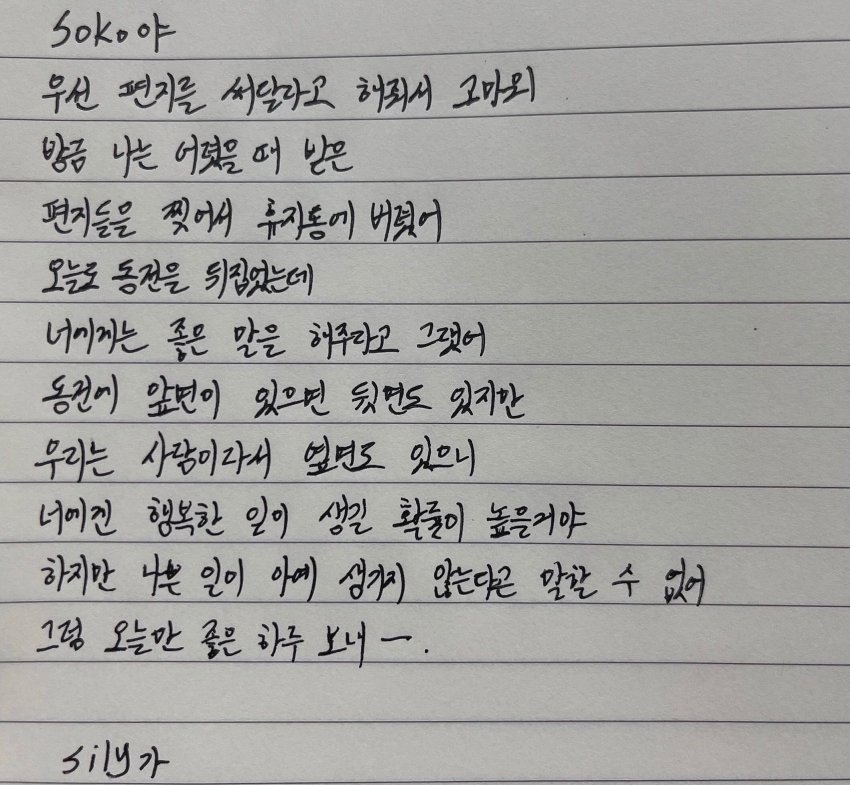 soko야
우선 편지를 써달라고 해줘서 고마워
방금 나는 어렸을 때 받은
편지들을 찢어서 휴지통에 버렸어
오늘로 동전을 뒤집었는데
너에게는 좋은 말을 해주라고 그랬어
동전에 앞면이 있으면 뒷면도 있지만
우리는 사람이라서 옆면도 있으니
너에겐 행복한 일이 생길 확률이 높을거야
하지만 나쁜 일이 아예 생기지 않는다곤 말할 수 없어
그럼 오늘만 좋은 하루 보내 ー.
sily가